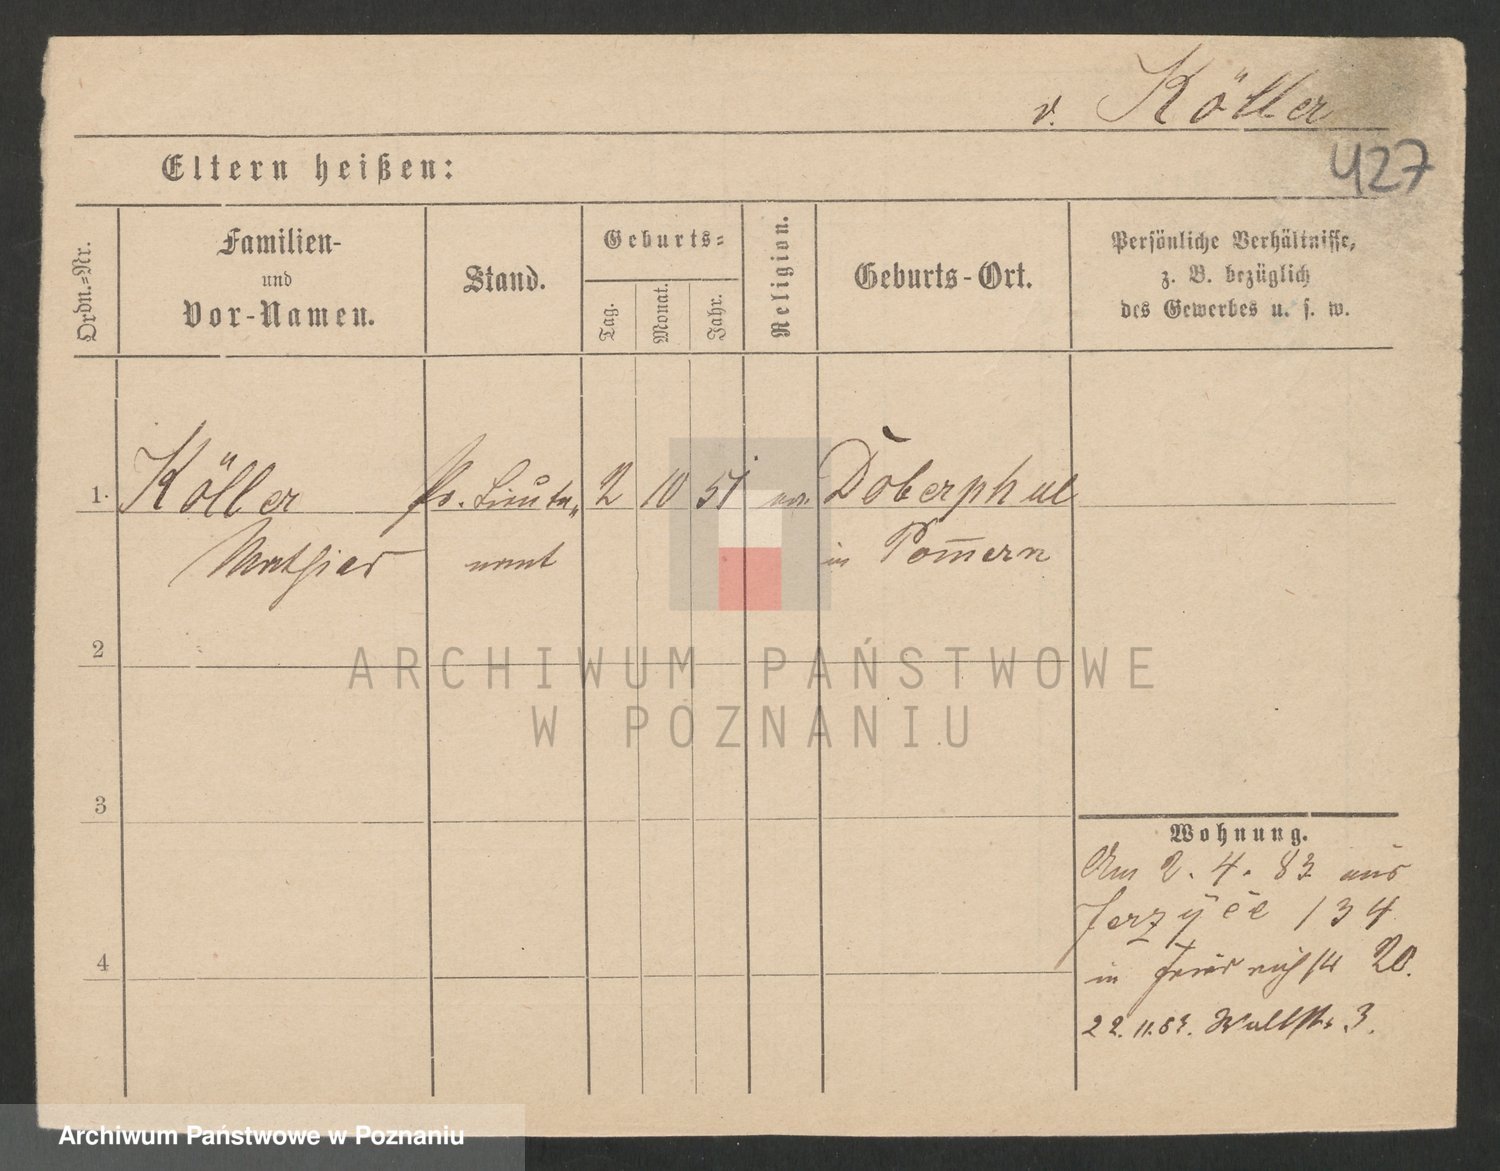 v. Köller
427
Eltern heißen:
Ordn.-Nr.
Familien-
und
Vor-Namen.
Stand.
Geburts-
Tag.
Monat.
Jahr.
Religion.
Geburts-Ort.
Persönliche Verhältnisse,
z. B. bezüglich
des Gewerbes u. s. w.
1. Köller Pr. Lieute„ 2 10 51 ev. Doberphul
Mathias nant in Pom̅ern
2
ARCHIWUM PAŃSTWOWE
W POZNANIU
3
4
Wohnung.
Am 2. 4. 83 aus
Jerzyce 134
in Friedrichstr 20.
22.11.83. Wallstr. 3.
Archiwum Państwowe w Poznaniu